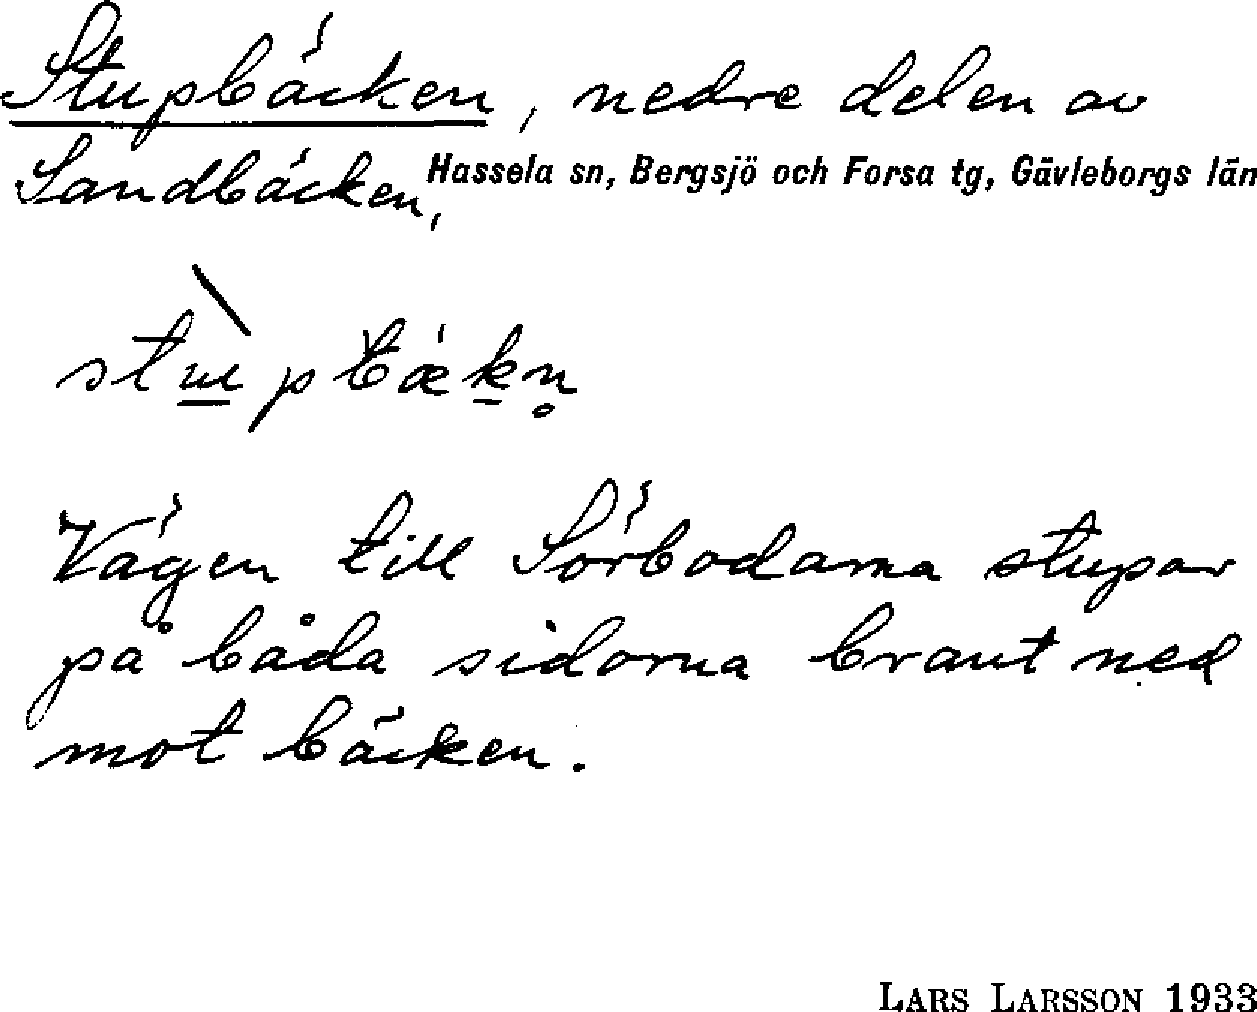 Stupbäcken, nedre delen av
Sandbäcken,
Hassela sn, Bergsjö och Forsa tg, Gävleborgs län
stùpbæ̀kn̥
Vägen till Sörbodarna stupar
på båda sidorna brant ned
mot bäcken.
LARS LARSSON 1933